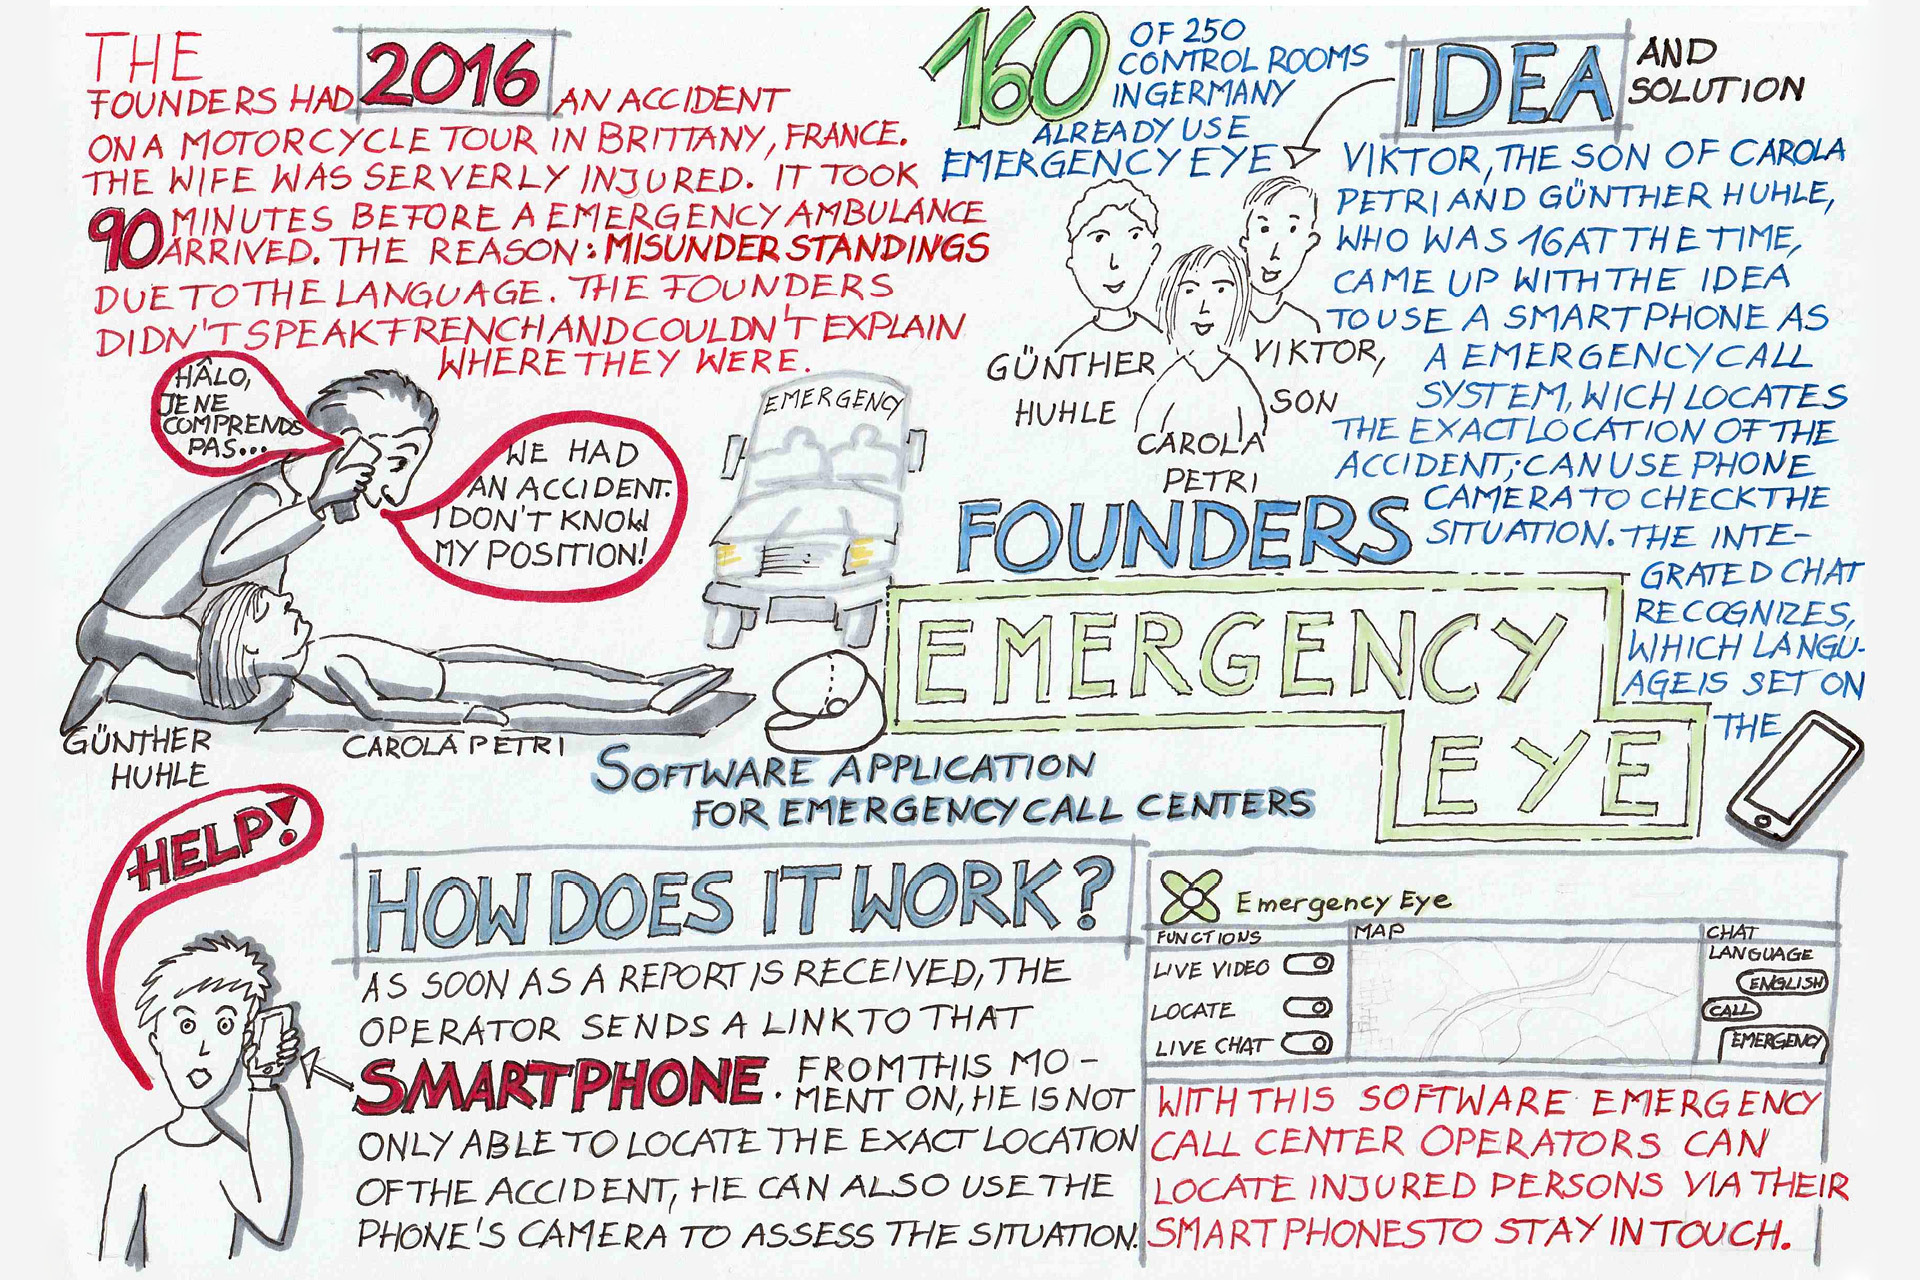 THE
FOUNDERS HAD 2016 AN ACCIDENT
ON A MOTORCYCLE TOUR IN BRITTANY, FRANCE.
THE WIFE WAS SERVERLY INJURED. IT TOOK
90 MINUTES BEFORE A EMERGENCY AMBULANCE
ARRIVED. THE REASON: MISUNDERSTANDINGS
DUE TO THE LANGUAGE. THE FOUNDERS
DIDN'T SPEAK FRENCH AND COULDN'T EXPLAIN
WHERE THEY WERE.
HÂLO,
JE NE
COMPRENDS
PAS...
WE HAD
AN ACCIDENT.
I DON'T KNOW
MY POSITION!
EMERGENCY
GÜNTHER
HUHLE
CAROLA PETRI
160 OF 250
CONTROL ROOMS
IN GERMANY
ALREADY USE
EMERGENCY EYE
GÜNTHER
HUHLE
CAROLA
PETRI
VIKTOR,
SON
FOUNDERS
IDEA AND
SOLUTION
VIKTOR, THE SON OF CAROLA
PETRI AND GÜNTHER HUHLE,
WHO WAS 16 AT THE TIME,
CAME UP WITH THE IDEA
TO USE A SMARTPHONE AS
A EMERGENCY CALL
SYSTEM, WICH LOCATES
THE EXACT LOCATION OF THE
ACCIDENT; CAN USE PHONE
CAMERA TO CHECK THE
SITUATION. THE INTE-
GRATED CHAT
RECOGNIZES,
WHICH LANGU-
AGE IS SET ON
THE
EMERGENCY
EYE
SOFTWARE APPLICATION
FOR EMERGENCY CALL CENTERS
HELP!
HOW DOES IT WORK?
AS SOON AS A REPORT IS RECEIVED, THE
OPERATOR SENDS A LINK TO THAT
SMARTPHONE. FROM THIS MO-
MENT ON, HE IS NOT
ONLY ABLE TO LOCATE THE EXACT LOCATION
OF THE ACCIDENT, HE CAN ALSO USE THE
PHONE'S CAMERA TO ASSESS THE SITUATION.
Emergency Eye
FUNCTIONS
LIVE VIDEO
LOCATE
LIVE CHAT
MAP
CHAT
LANGUAGE
ENGLISH
CALL
EMERGENCY
WITH THIS SOFTWARE EMERGENCY
CALL CENTER OPERATORS CAN
LOCATE INJURED PERSONS VIA THEIR
SMARTPHONES TO STAY IN TOUCH.